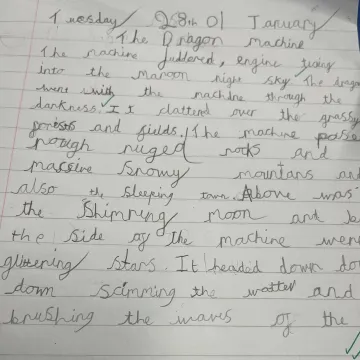 Tuesday 28th 01 January
The Dragon machine
The machine juddered, engine
into the maroon night sky. The dragon
were with the machine through the
darkness. I I clattend over the grassy
and fields. The machine passe
rough ruged rocks and
massive snowy mountans and
also the sleeping town. Above was
the Shimring moon and be
the side of the machine were
glittering stars. It headed down do
down scimming the watter and
brushing the waves of the